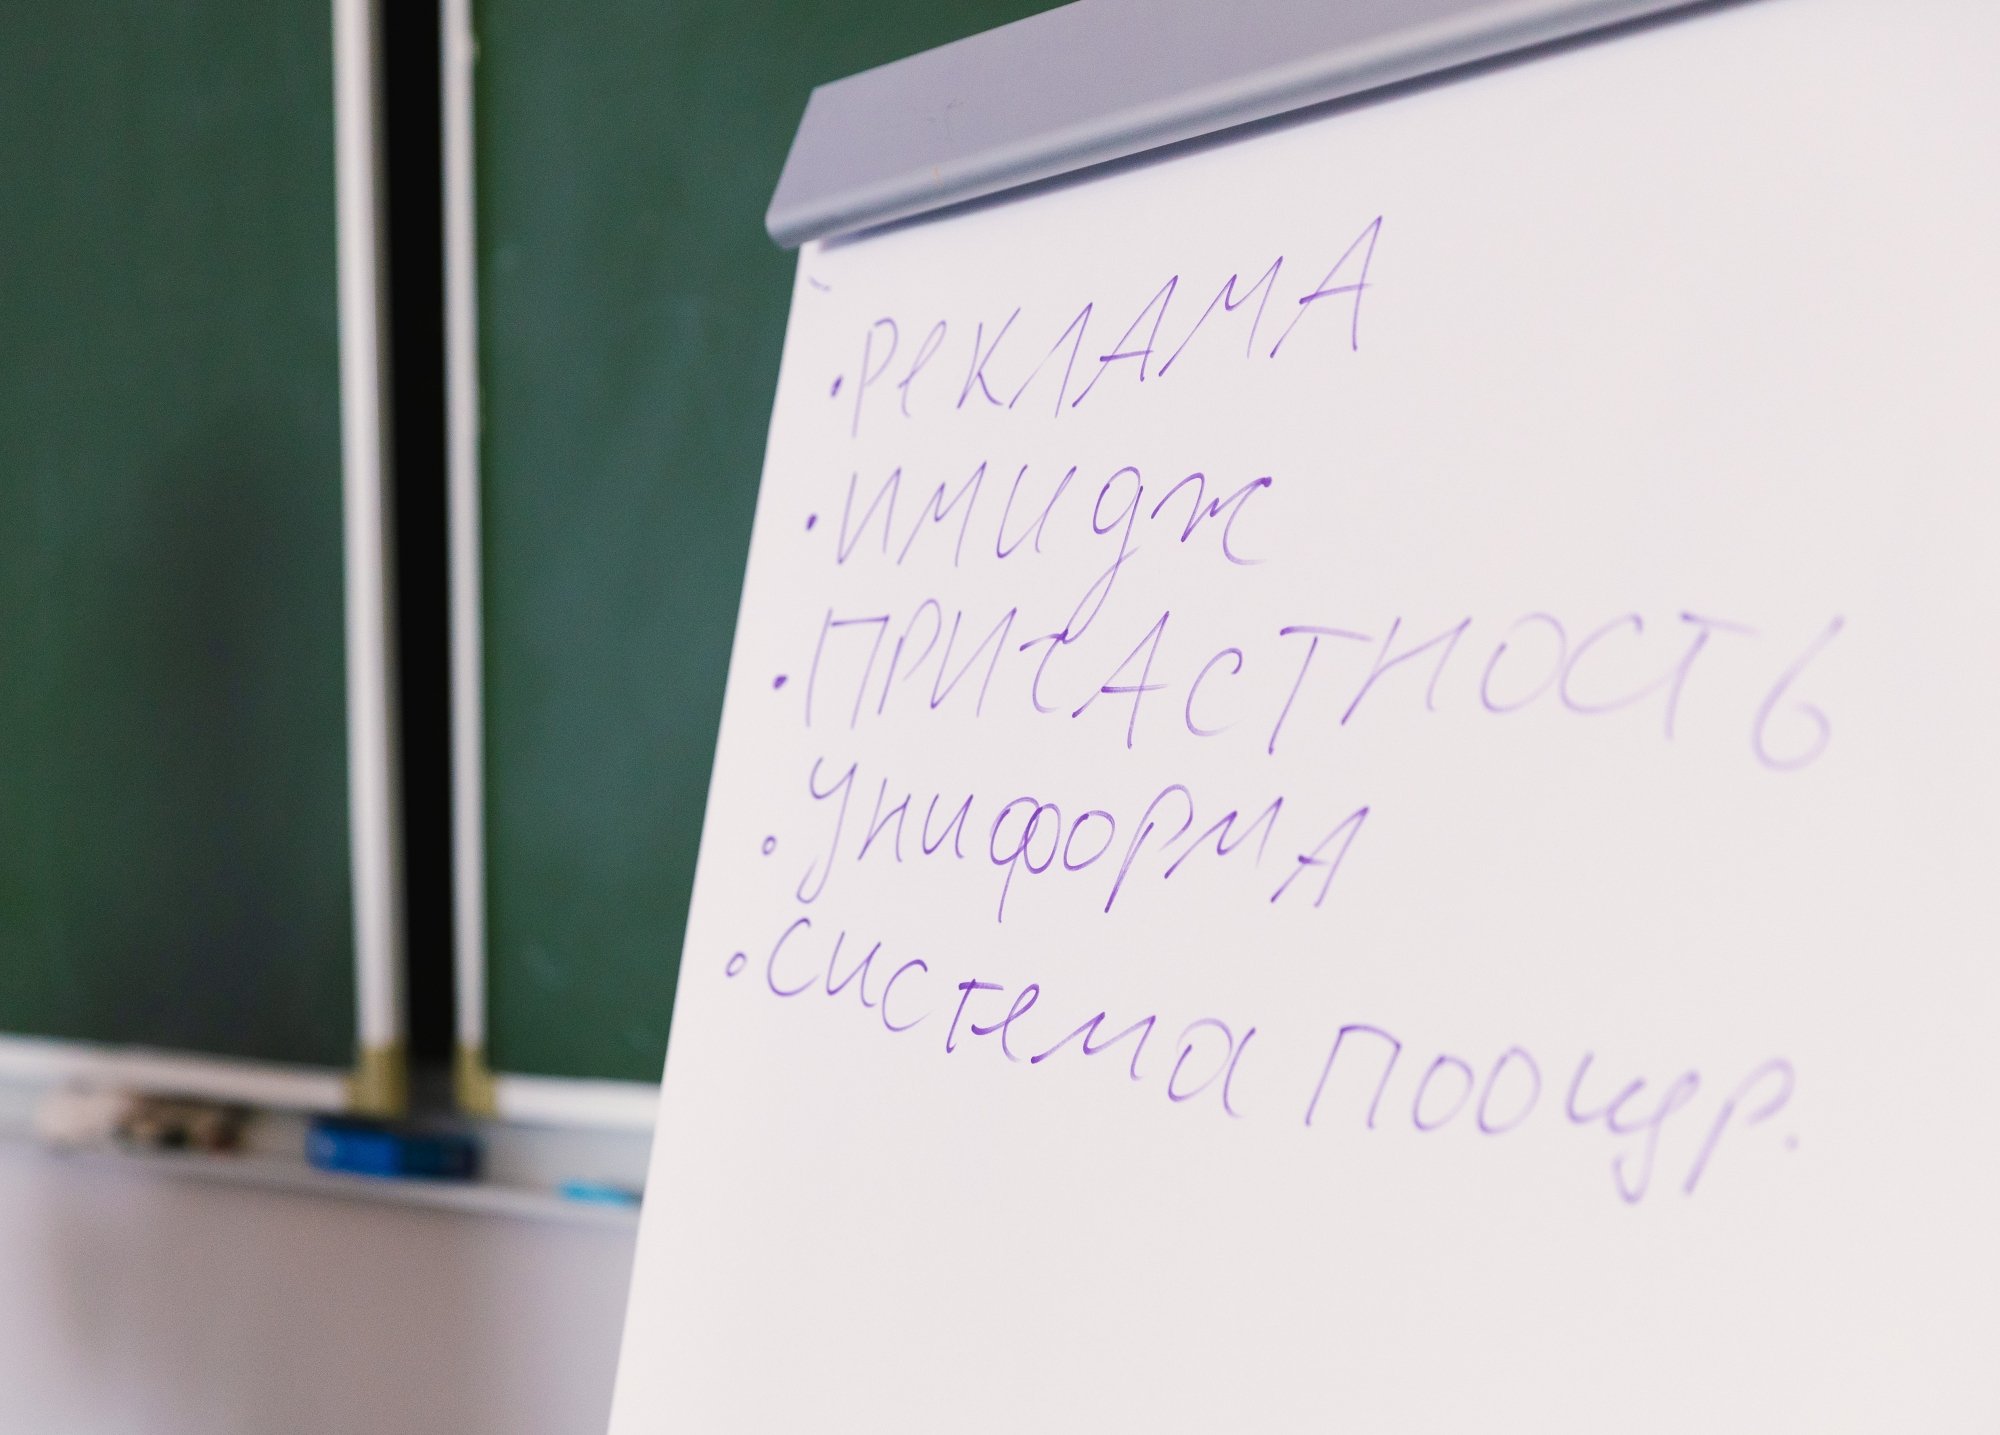 • РЕКЛАМА
• ИМИДЖ
• ПРИЧАСТНОСТЬ
• УНИФОРМА
• Система поощр.